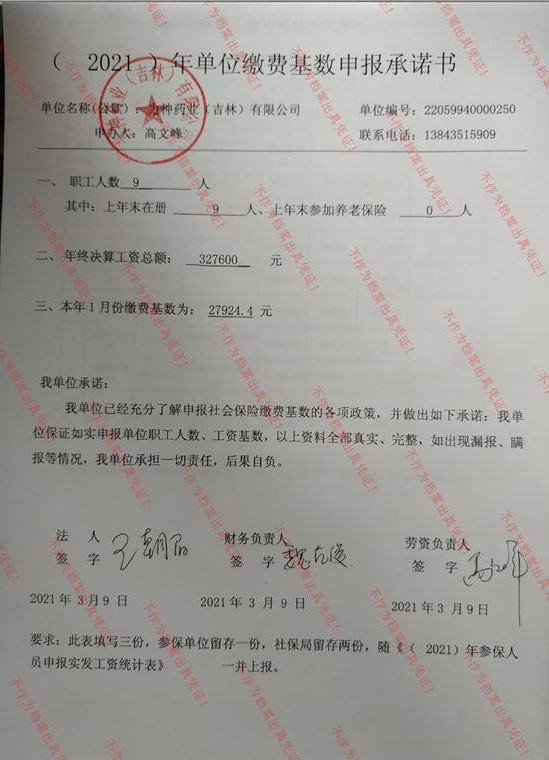 ( 2021 ) 年单位缴费基数申报承诺书
单位名称(公章)：力神药业（吉林）有限公司 单位编号：22059940000250
申办人：高文峰 联系电话：13843515909
一、 职工人数 9 人
其中：上年末在册 9 人、上年末参加养老保险 0 人
二、年终决算工资总额： 327600 元
三、本年1月份缴费基数为： 27924.4 元
我单位承诺：
我单位已经充分了解申报社会保险缴费基数的各项政策，并做出如下承诺：我单
位保证如实申报单位职工人数、工资基数，以上资料全部真实、完整，如出现漏报、瞒
报等情况，我单位承担一切责任，后果自负。
法 人 财务负责人 劳资负责人
签 字 签 字 签 字
2021年3月9日 2021年3月9日 2021年3月9日
要求：此表填写三份，参保单位留存一份，社保局留存两份，随《（ 2021）年参保人
员申报实发工资统计表》 一并上报。
不作为档案出具凭证！